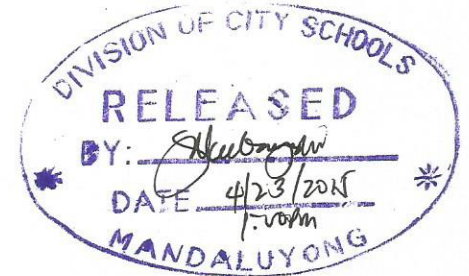 DIVISION OF CITY SCHOOLS
RELEASED
BY:
DATE 4/23/2015
MANDALUYONG